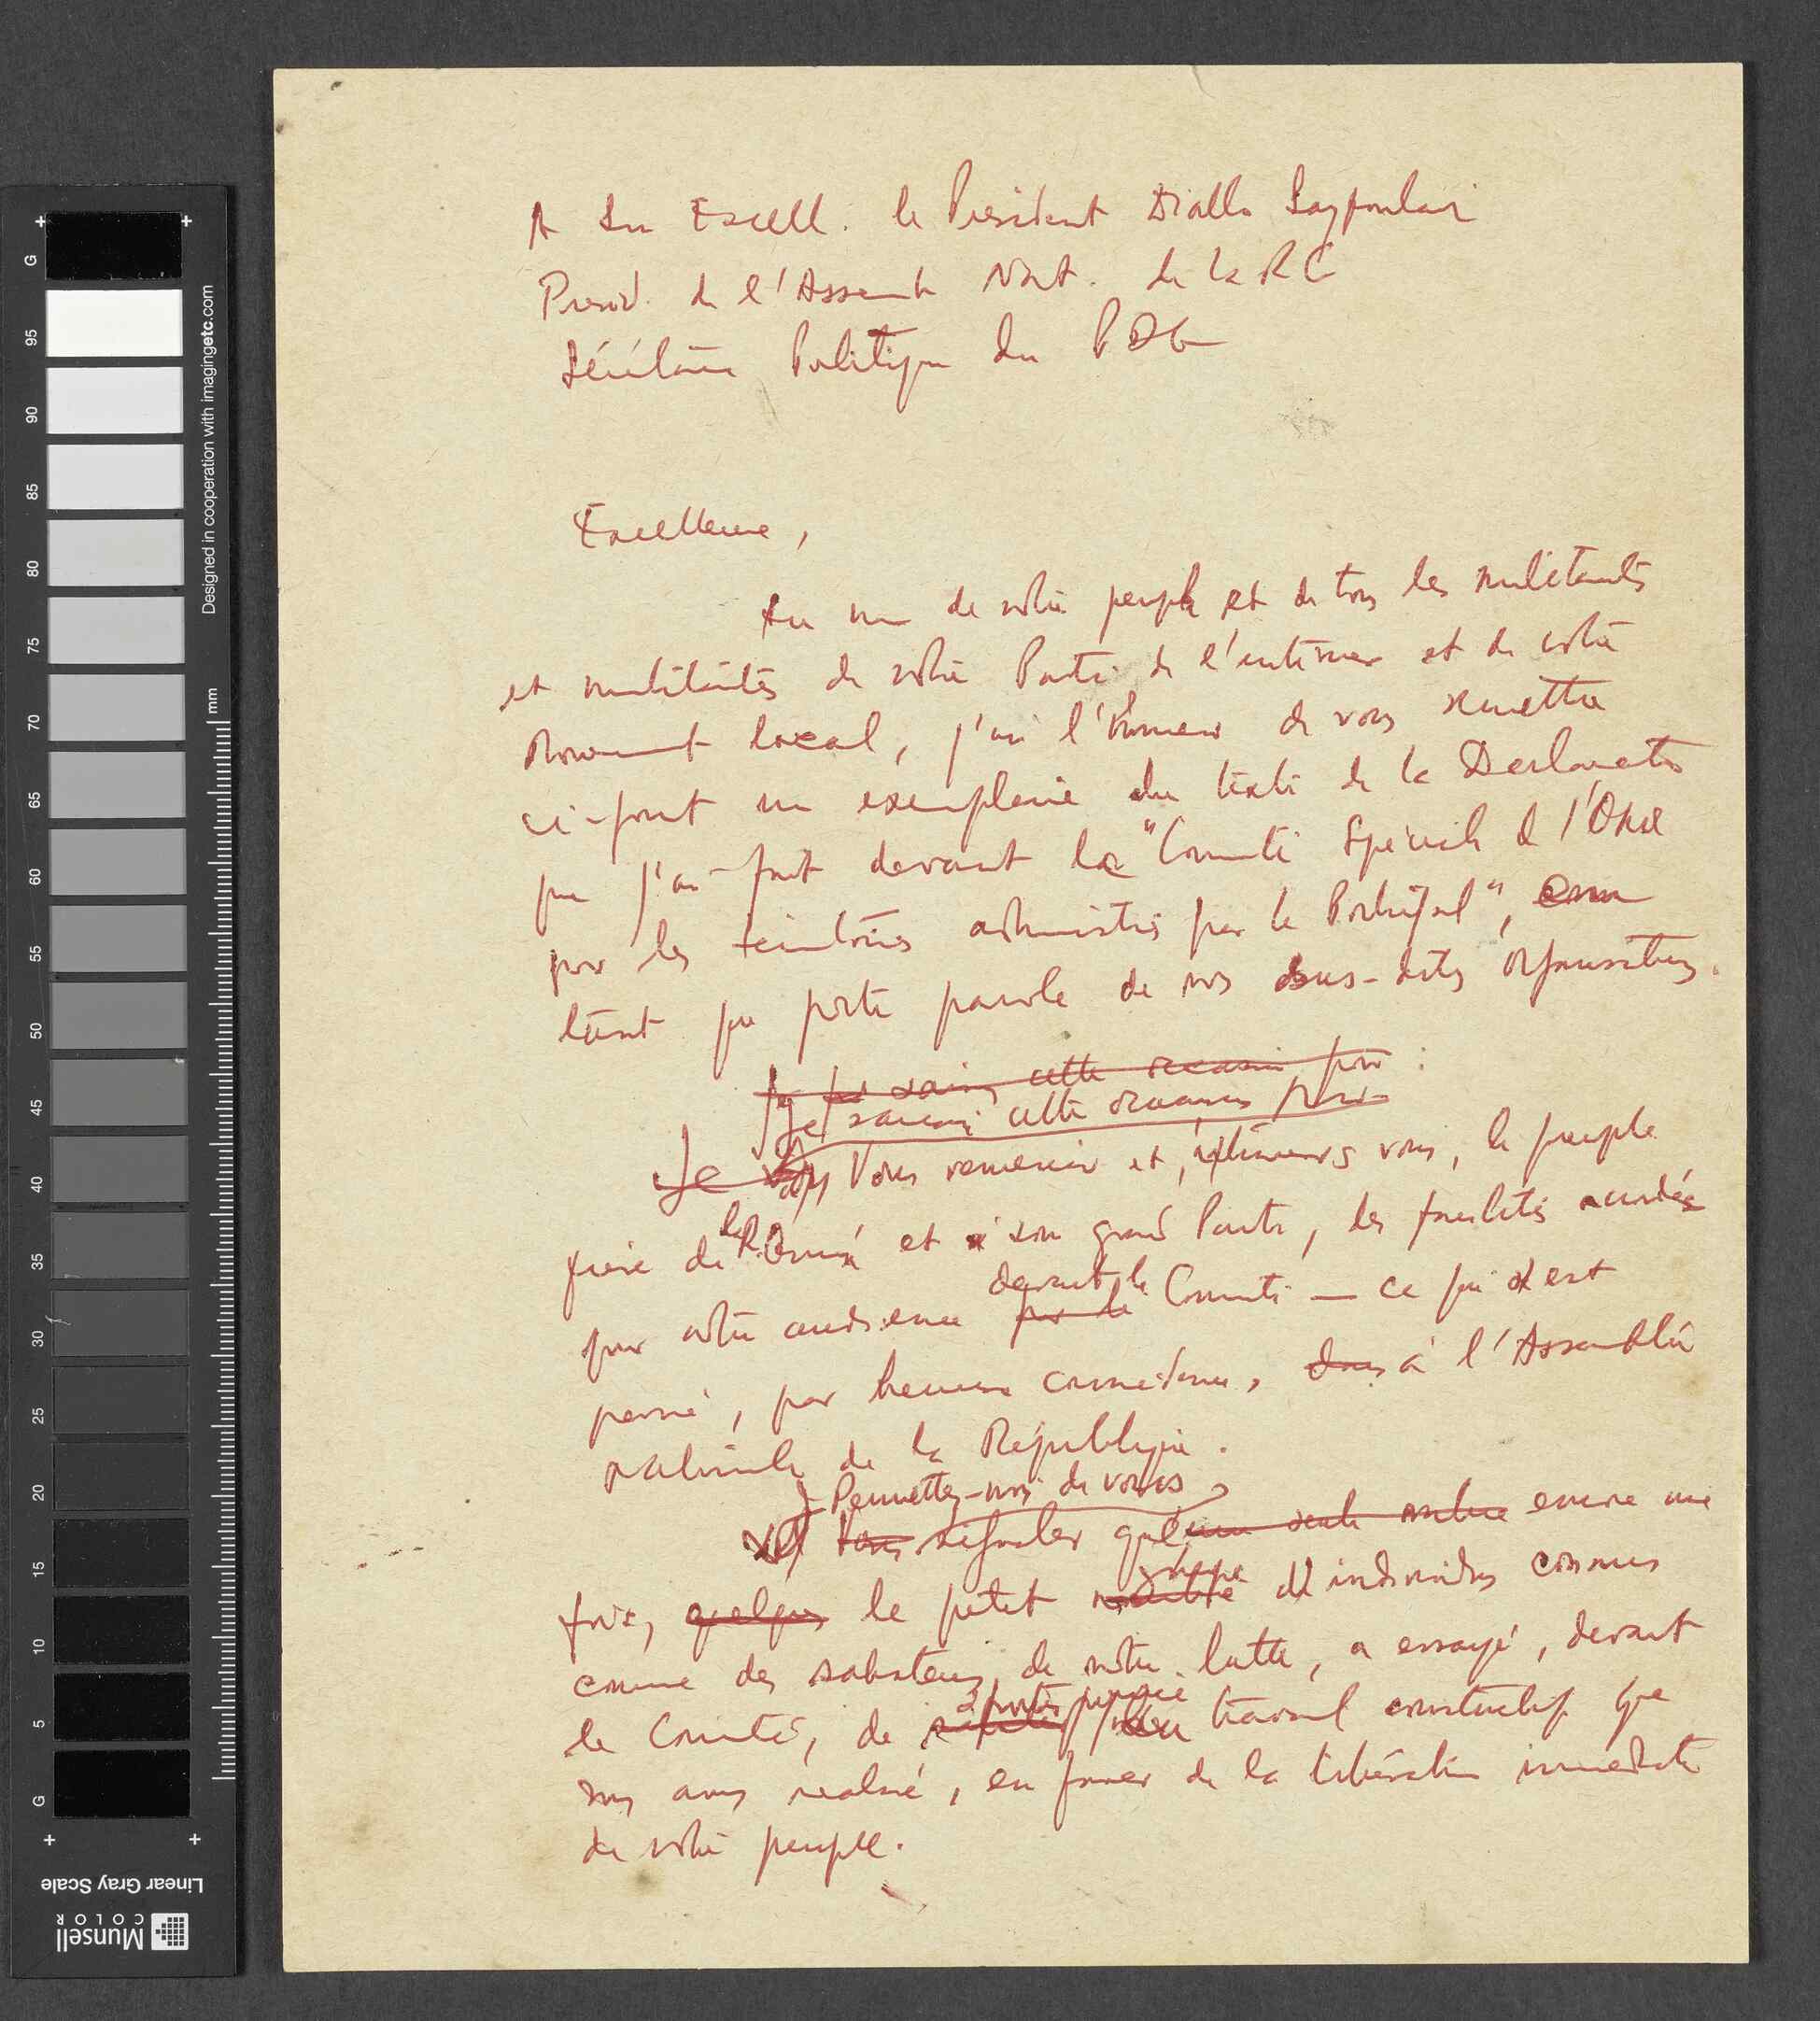 A Son Excell. le Président Diallo Sayfoulaie
Presid. de l'Assemb Nat. de la RG
Sécrétaire Politique du PDG
Excellence,
Au nom de notre peuple et de tous les militants
et militantes de notre Parti de l'intérieur et de notre
Mouvement local, j'ai l'honneur de vous remettre
ci-joint un exemplaire du texte de la Declaration
que j'ai fait devant le "Comité Spéciale de l'ONU
pour les territoires administrés par le Portugal", en
tant que porte parole de nos sus-dites organisations.
Je saisis cette occasion pour :
Je saisis cette occasion pour
Je Vous remercier et, à travers vous, le peuple
frère de la R. Guinée et son grand Parti, des facilités accordées
pour notre audience devant le Comité — ce qui s'est
passé, par heureuse coincidence, dans à l'Assemblée
nationale de la République.
Permettez-moi de vous
Vous signaler que encore une
fois, quelques le petit groupe d'individus connus
comme des saboteurs de notre lutte, a essayé, devant
le Comité, de travail constructif que
nous avons réalisé, en faveur de la libération immédiate
de notre peuple.
G
95
90
85
80
75
70
65
60
55
50
45
40
35
30
25
20
15
10
5
G
mm
Designed in cooperation with imagingetc.com
Linear Gray Scale
Munsell
COLOR